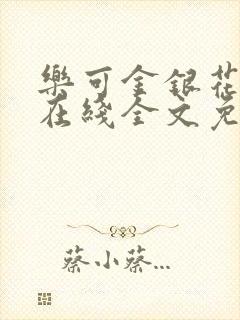 樂可金銀花
在綫全文免
蔡小蔡...